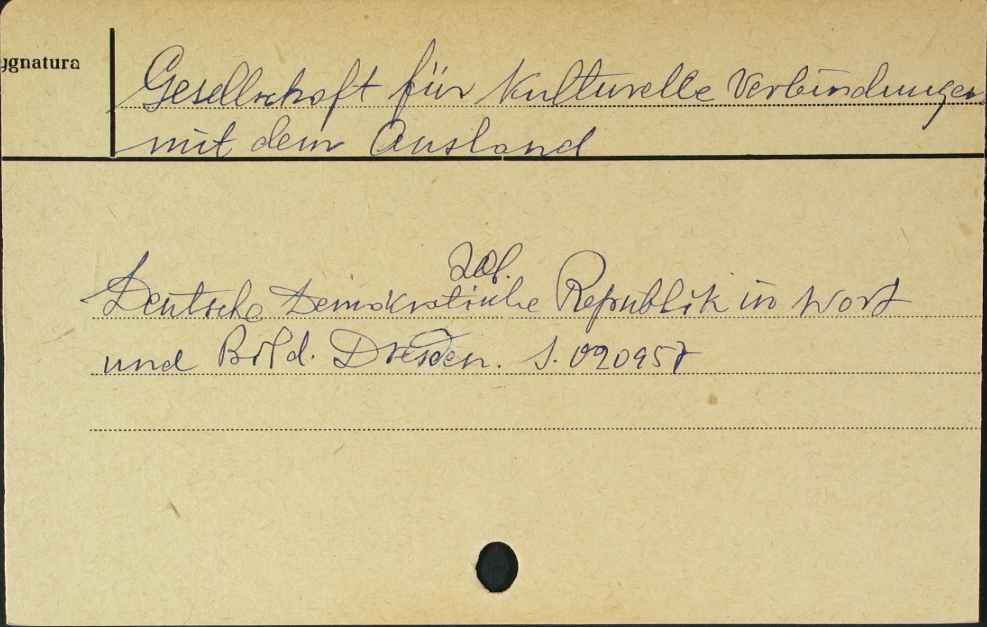 ygnatura
Gesellschaft für Kulturelle Verbindungen
mit dem Ausland
zob.
Deutsche Demokratische Republik in Wort
und Bild. Dresden. S. 020957